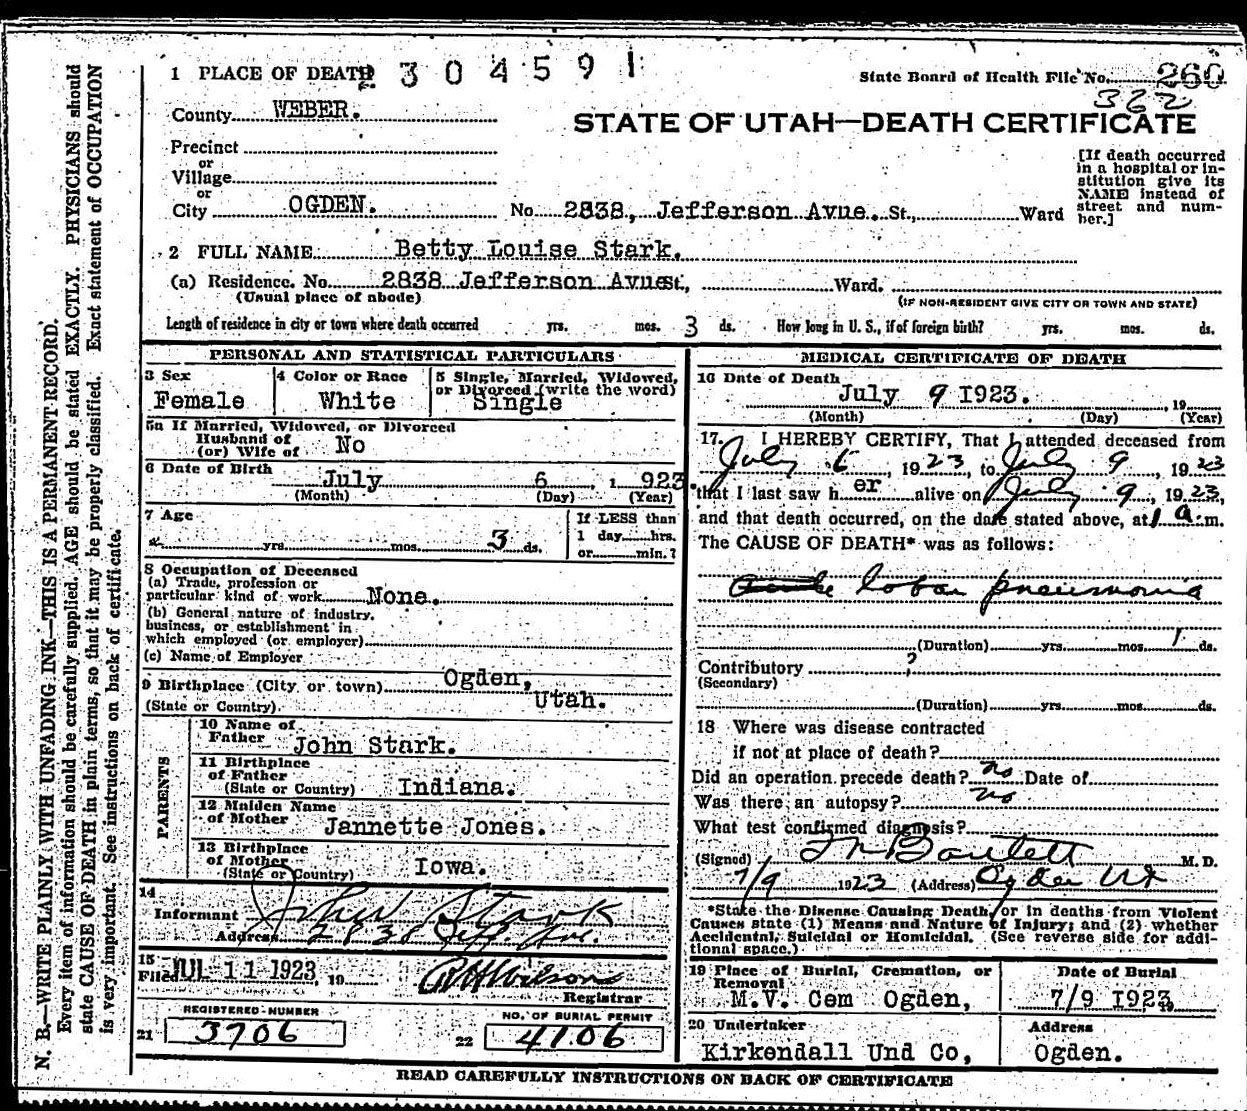 1 PLACE OF DEATH 2 3 0 4 5 9 1
State Board of Health File No. 260
362
County WEBER.
STATE OF UTAH—DEATH CERTIFICATE
Precinct
or
Village
or
City OGDEN. No. 2838, Jefferson Avue. St., Ward
[If death occurred
in a hospital or in-
stitution give its
NAME instead of
street and num-
ber.]
2 FULL NAME Betty Louise Stark.
(a) Residence. No. 2838 Jefferson Avue St, Ward.
(Usual place of abode) (IF NON-RESIDENT GIVE CITY OR TOWN AND STATE)
Length of residence in city or town where death occurred yrs. mos. 3 ds. How long in U. S., if of foreign birth? yrs. mos. ds.
PERSONAL AND STATISTICAL PARTICULARS
3 Sex
Female
4 Color or Race
White
5 Single, Married, Widowed,
or Divorced (write the word)
Single
5a If Married, Widowed, or Divorced
Husband of
(or) Wife of No
6 Date of Birth
July 6 , 1 923.
(Month) (Day) (Year)
7 Age
yrs. mos. 3 ds.
If LESS than
1 day hrs.
or min.?
8 Occupation of Deceased
(a) Trade, profession or
particular kind of work None.
(b) General nature of industry,
business, or establishment in
which employed (or employer)
(c) Name of Employer
9 Birthplace (City or town) Ogden,
(State or Country) Utah.
PARENTS
10 Name of
Father John Stark.
11 Birthplace
of Father
(State or Country) Indiana.
12 Maiden Name
of Mother Jannette Jones.
13 Birthplace
of Mother
(State or Country) Iowa.
14
Informant John Stark
Address 2838 Jeff. Ave.
15
Filed JUL 11 1923 , 19 R H Wilson
Registrar
REGISTERED NUMBER
21 3706
NO. OF BURIAL PERMIT
22 4106
MEDICAL CERTIFICATE OF DEATH
16 Date of Death
July 9 1923. , 19
(Month) (Day) (Year)
17. I HEREBY CERTIFY, That I attended deceased from
July 6, 1923, to July 9, 1923
that I last saw her alive on July 9, 1923,
and that death occurred, on the date stated above, at 1 a. m.
The CAUSE OF DEATH* was as follows:
lobar pneumonia
(Duration) yrs. mos. 1 ds.
Contributory ?
(Secondary)
(Duration) yrs. mos. ds.
18 Where was disease contracted
if not at place of death?
Did an operation precede death? no Date of
Was there an autopsy? no
What test confirmed diagnosis?
(Signed) Bartlett M. D.
7/9 1923 (Address) Ogden Ut
*State the Disease Causing Death, or in deaths from Violent
Causes state (1) Means and Nature of Injury; and (2) whether
Accidental, Suicidal or Homicidal. (See reverse side for addi-
tional space.)
19 Place of Burial, Cremation, or
Removal
M.V. Cem Ogden,
Date of Burial
7/9 1923 19
20 Undertaker
Kirkendall Und Co,
Address
Ogden.
READ CAREFULLY INSTRUCTIONS ON BACK OF CERTIFICATE
N. B.—WRITE PLAINLY WITH UNFADING INK—THIS IS A PERMANENT RECORD.
Every item of information should be carefully supplied. AGE should be stated EXACTLY. PHYSICIANS should
state CAUSE OF DEATH in plain terms, so that it may be properly classified. Exact statement of OCCUPATION
is very important. See instructions on back of certificate.